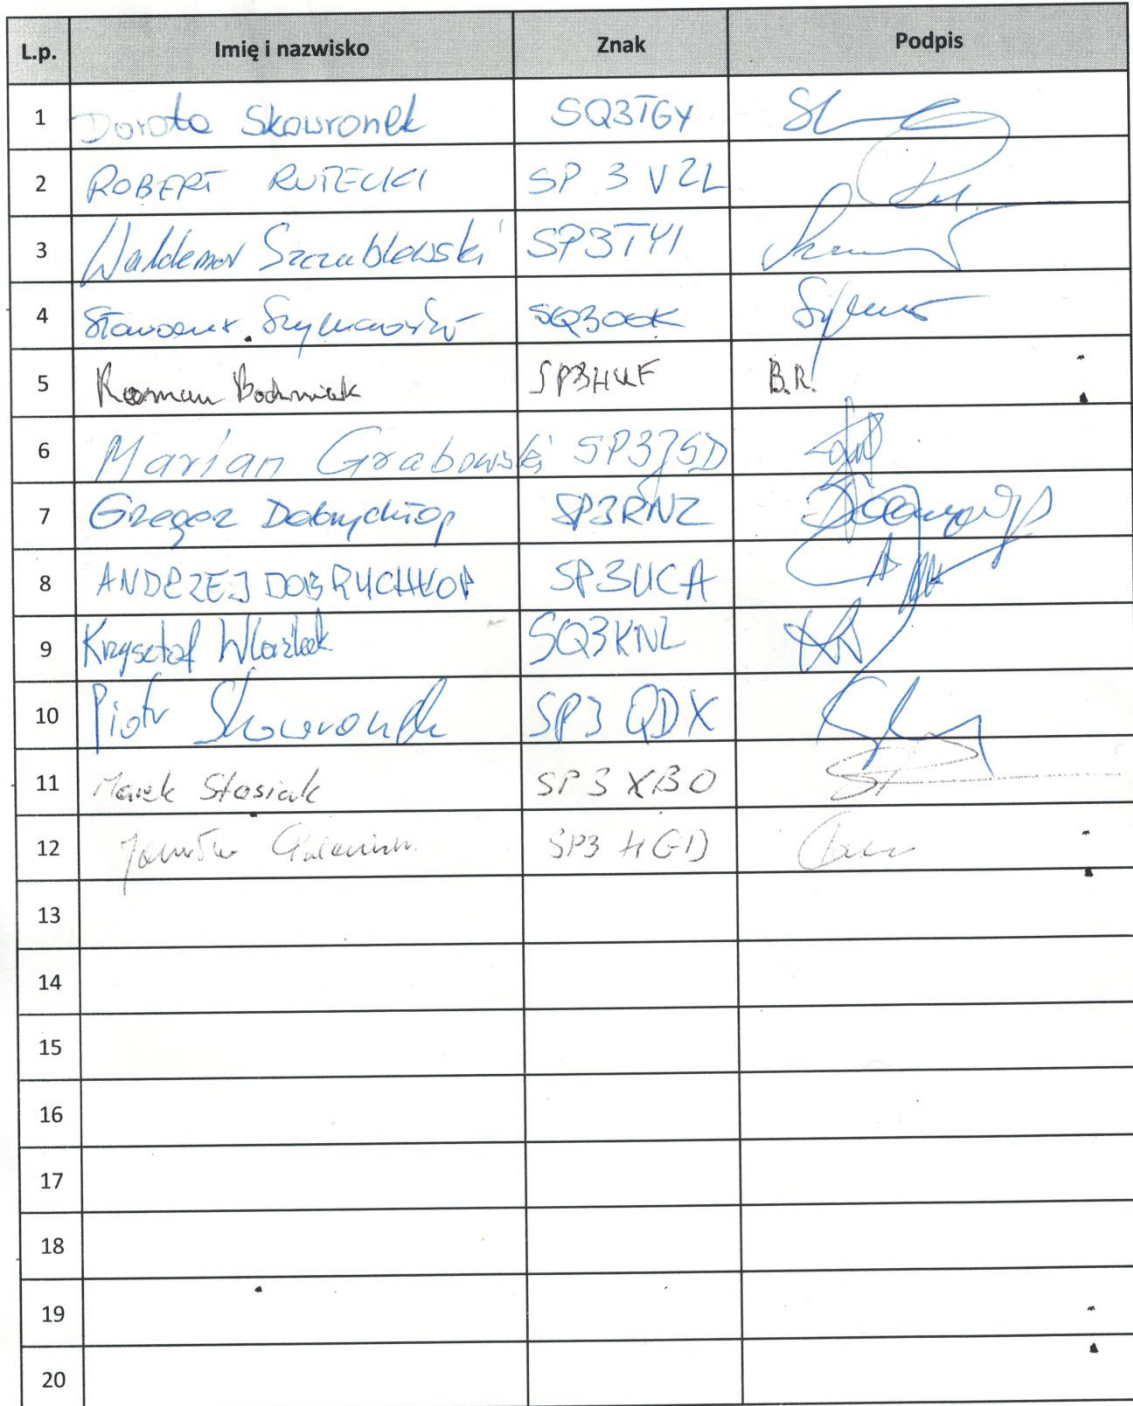 L.p. Imię i nazwisko Znak Podpis
1 Dorota Skowronek SQ3TGY
2 ROBERT RUTECKI SP 3 VZL
3 Waldemar Szczublewski SP3TYI
4 SQ3OEK
5 Roman Bochmiak SP3HUF B.R.
6 Marian Grabowski SP3JSD
7 Grzegorz Dobrychłop SP3RNZ
8 ANDRZEJ DOBRYCHŁOP SP3UCA
9 Krzysztof SQ3KNL
10 Piotr Skowronek SP3 QDX
11 Marek Stasiak SP 3 XBO
12 SP3 HGD
13
14
15
16
17
18
19
20